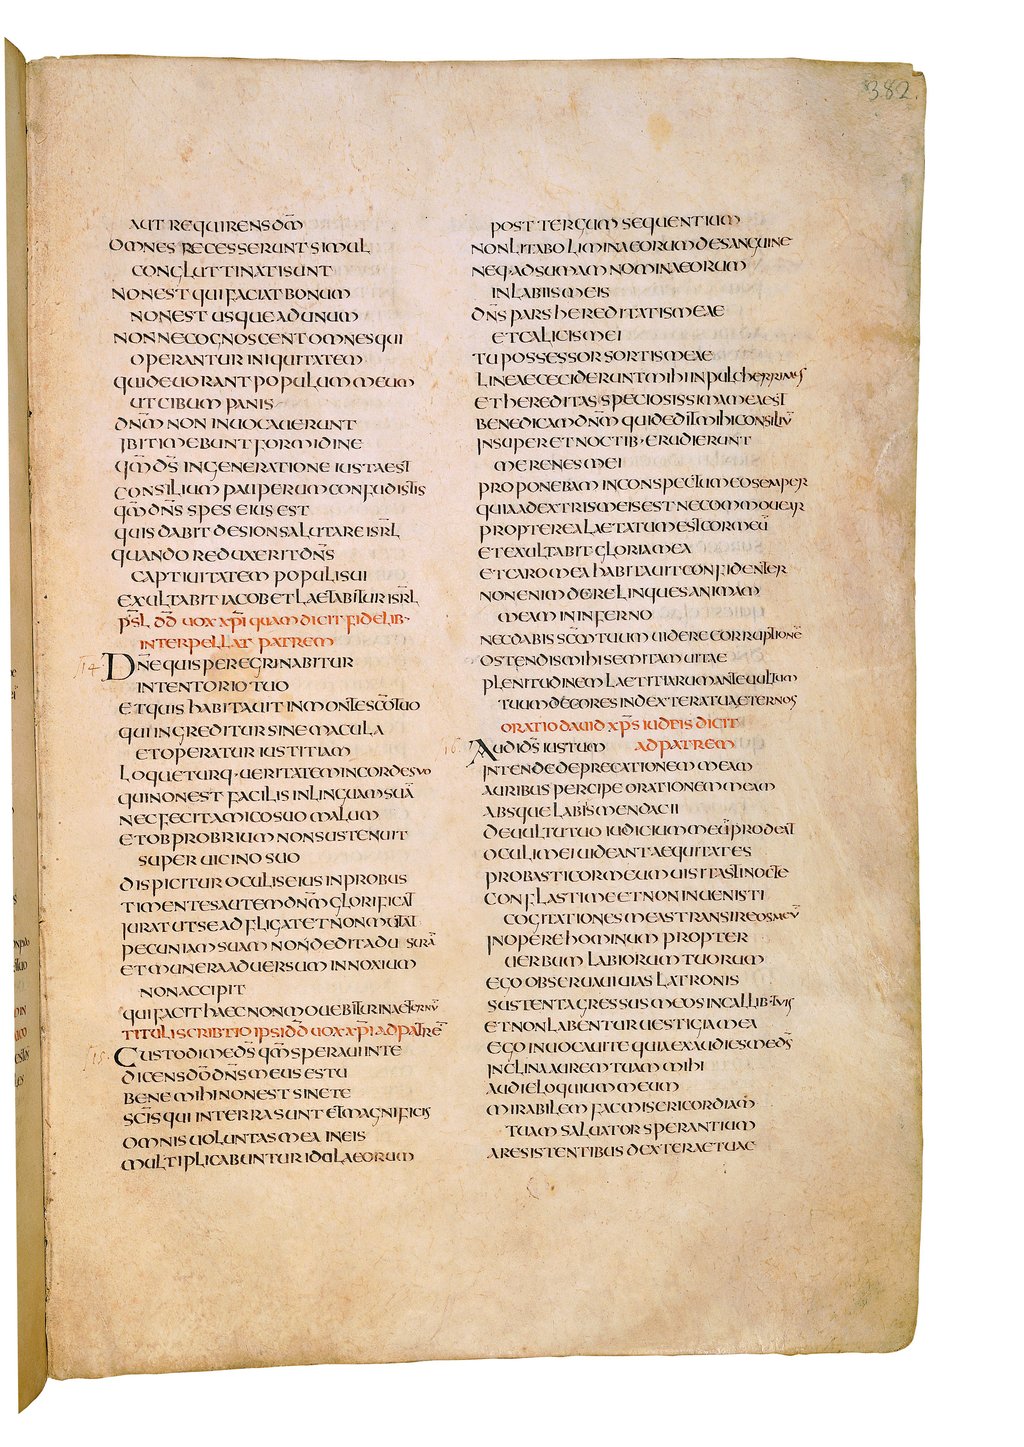 382.
AUT REQUIRENS DM̄
OMNES RECESSERUNT SIMUL
CONGLUTTINATI SUNT
NON EST QUI FACIAT BONUM
NON EST USQUE AD UNUM
NONNE COGNOSCENT OMNES QUI
OPERANTUR INIQUITATEM
QUI DEUORANT POPULUM MEUM
UT CIBUM PANIS
DN̄M NON INUOCAUERUNT
IBI TIMEBUNT FORMIDINE
QM̄ DS̄ IN GENERATIONE IUSTA EST
CONSILIUM PAUPERUM CONFUDISTIS
QM̄ DN̄S SPES EIUS EST
QUIS DABIT DE SION SALUTARE ISRL̄
QUANDO REDUXERIT DN̄S
CAPTIUITATEM POPULI SUI
EXULTABIT IACOB ET LAETABITUR ISRL̄
PSL̄ DD̄ UOX XP̄I QUAM DICIT FIDELIB·
INTERPELLAT PATREM
14 DN̄E QUIS PEREGRINABITUR
IN TENTORIO TUO
ET QUIS HABITAUIT IN MONTE SCO̅ TUO
QUI INGREDITUR SINE MACULA
ET OPERATUR IUSTITIAM
LOQUETURQ· UERITATEM IN CORDE SUO
QUI NON EST FACILIS IN LINGUAM SUĀ
NEC FECIT AMICO SUO MALUM
ET OBPROBRIUM NON SUSTENUIT
SUPER UICINO SUO
DISPICITUR OCULIS EIUS INPROBUS
TIMENTES AUTEM DN̄M GLORIFICAT
IURAT UT SE ADFLIGAT ET NON MUTAT
PECUNIAM SUAM NON DEDIT AD USURĀ
ET MUNERA ADUERSUM INNOXIUM
NON ACCIPIT
QUI FACIT HAEC NON MOUEBITUR IN AETERNŪ
TITULI SCRIBTIO IPSI DD̄ UOX XP̄I AD PATRĒ
15· CUSTODI ME DS̄ QM̄ SPERAUI IN TE
DICENS DŌ DN̄S MEUS ES TU
BENE MIHI NON EST SINE TE
SCĪS QUI IN TERRA SUNT ET MAGNIFICIS
OMNIS UOLUNTAS MEA IN EIS
MULTIPLICABUNTUR IDULA EORUM
POST TERGUM SEQUENTIUM
NON LITABO LIMINA EORUM DE SANGUINE
NEQ· ADSUMAM NOMINA EORUM
IN LABIIS MEIS
DN̄S PARS HEREDITATIS MEAE
ET CALICIS MEI
TU POSSESSOR SORTIS MEAE
LINEAE CECIDERUNT MIHI IN PULCHERRIMIS
ET HEREDITAS SPECIOSISSIMA MEA EST
BENEDICAM DN̄M QUI DEDIT MIHI CONSILIŪ
INSUPER ET NOCTIB· ERUDIERUNT
ME RENES MEI
PROPONEBAM IN CONSPECTUM EO SEMPER
QUIA A DEXTRIS MEIS EST NE COMMOUEAR
PROPTEREA LAETATUM EST COR MEŪ
ET EXULTABIT GLORIA MEA
ET CARO MEA HABITAUIT CONFIDENTER
NON ENIM DERELINQUES ANIMAM
MEAM IN INFERNO
NEC DABIS SCM̄ TUUM UIDERE CORRUPTIONĒ
OSTENDIS MIHI SEMITAM UITAE
PLENITUDINEM LAETITIARUM ANTE UULTUM
TUUM DECORES IN DEXTERA TUA AETERNOS
ORATIO DAUID XP̄S IUDEIS DICIT
16· AUDI DS̄ IUSTUM AD PATREM
INTENDE DEPRECATIONEM MEAM
AURIBUS PERCIPE ORATIONEM MEAM
ABSQUE LABIIS MENDACII
DE UULTU TUO IUDICIUM MEŪ PRODEAT
OCULI MEI UIDEANT AEQUITATES
PROBASTI COR MEUM UISITASTI NOCTE
CONFLASTI ME ET NON INUENISTI
COGITATIONES MEAS TRANSIRE OS MEŪ
IN OPERE HOMINUM PROPTER
UERBUM LABIORUM TUORUM
EGO OBSERUAUI UIAS LATRONIS
SUSTENTA GRESSUS MEOS IN CALLIB· TUIS
ET NON LABENTUR UESTIGIA MEA
EGO INUOCAUI TE QUIA EXAUDIES ME DS̄
INCLINA AUREM TUAM MIHI
AUDI ELOQUIUM MEUM
MIRABILEM FAC MISERICORDIAM
TUAM SALUATOR SPERANTIUM
A RESISTENTIBUS DEXTERAE TUAE